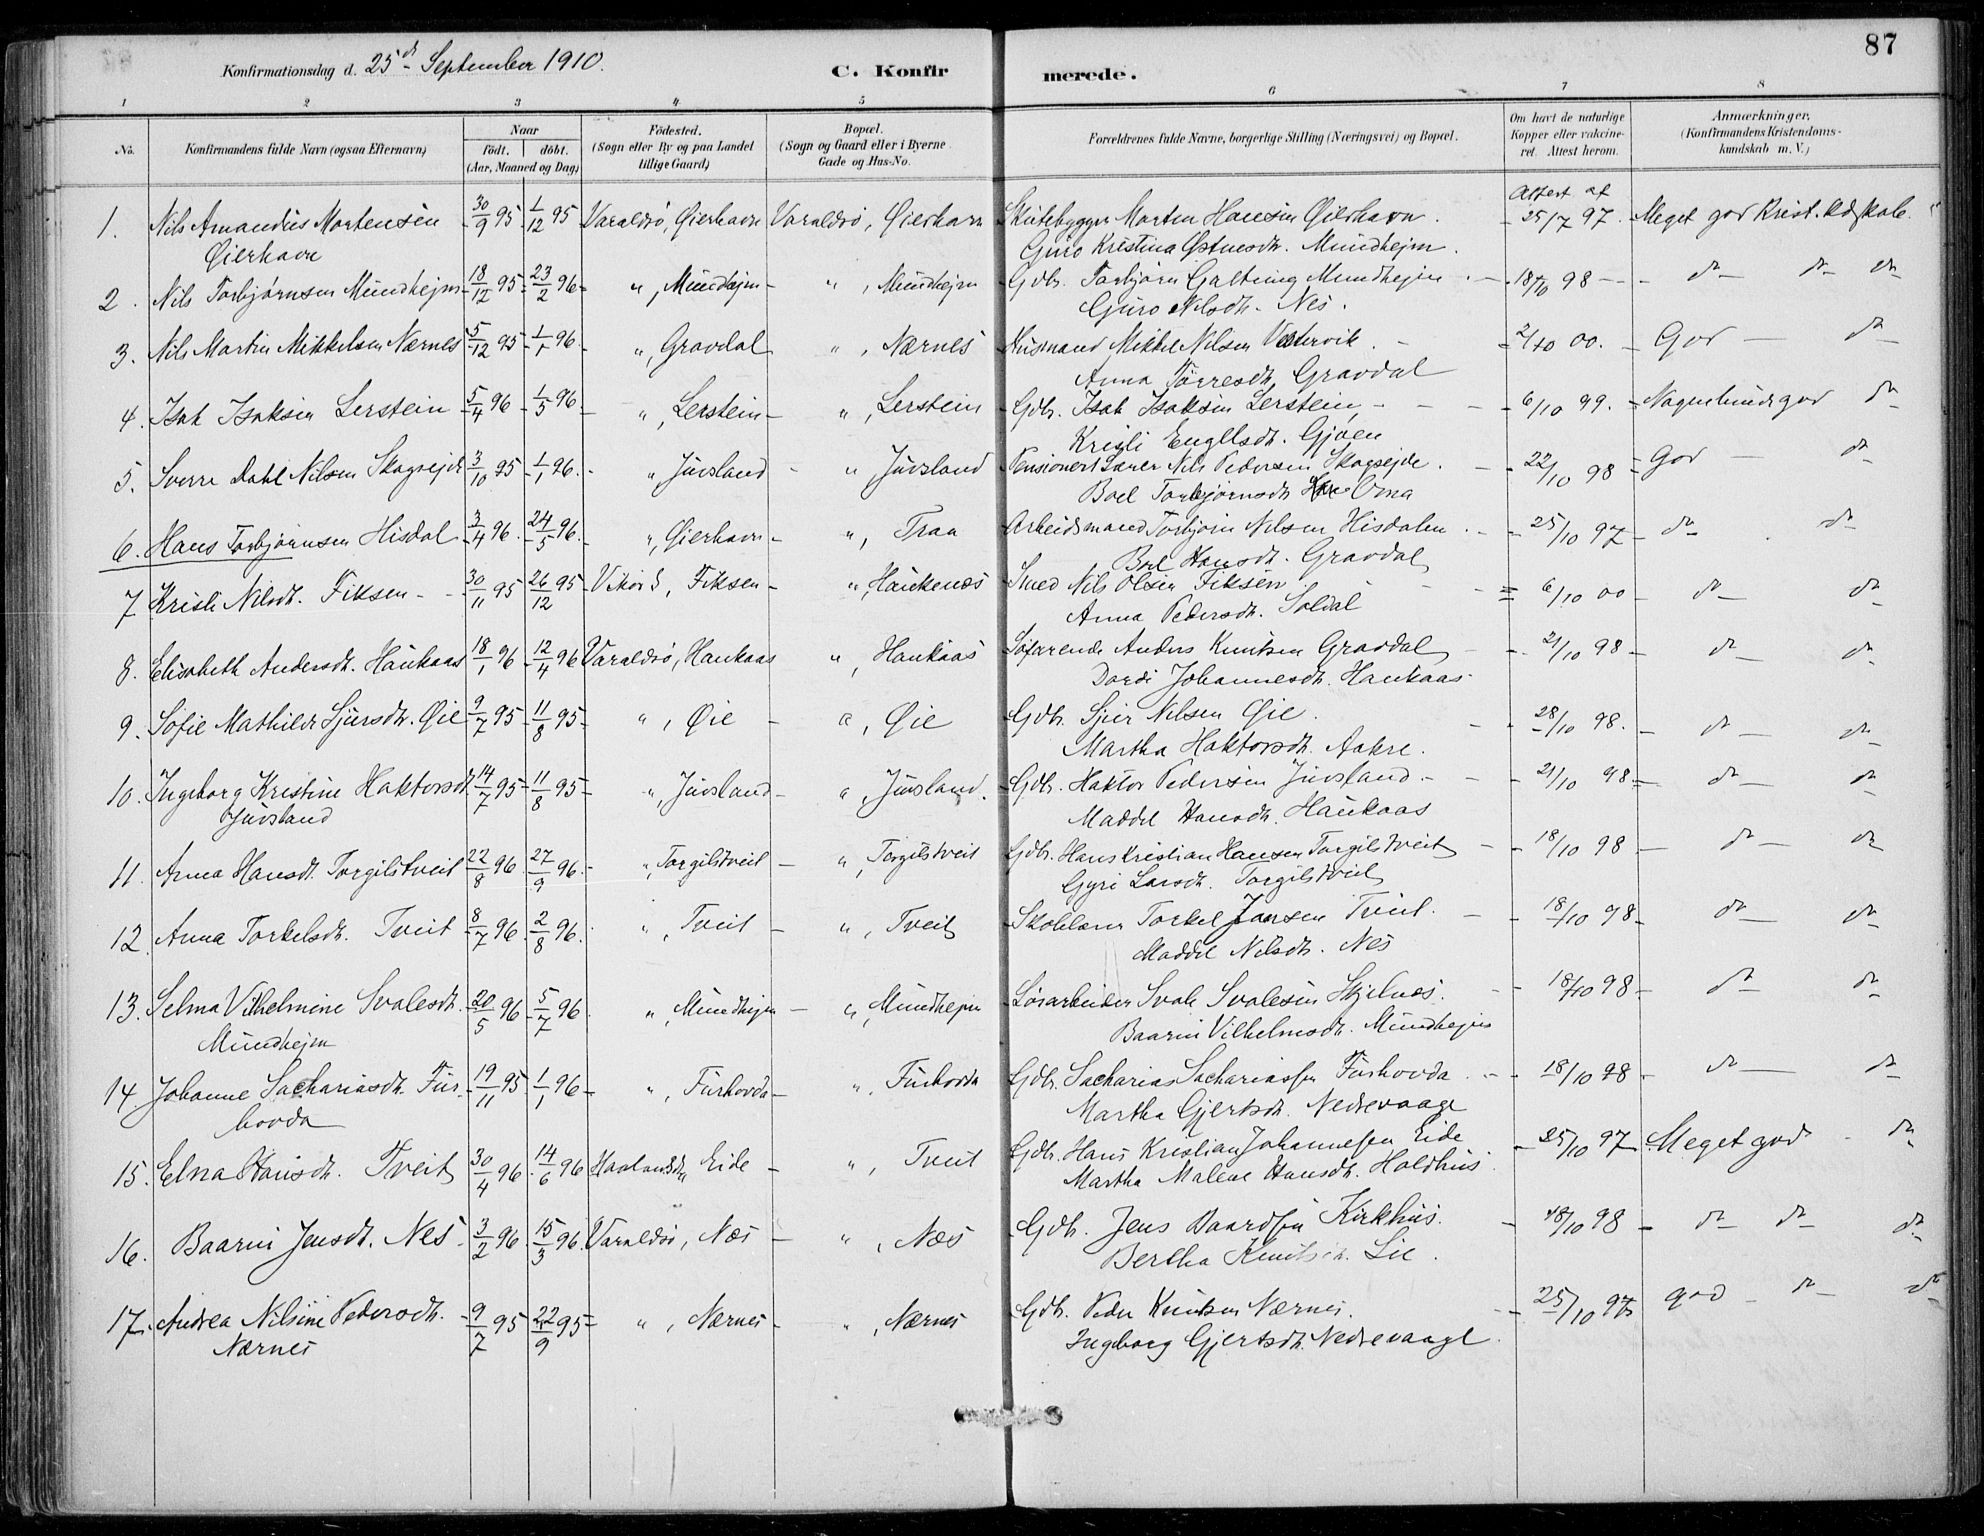 87
Konfirmationsdag d. 25de September 1910. C. Konfirmerede.
1 2 3 4 5 6 7 8
No. Konfirmandens fulde Navn (ogsaa Efternavn) Naar födt. döbt. (Aar, Maaned og Dag) Födested. (Sogn eller By og paa Landet tillige Gaard) Bopæl. (Sogn og Gaard eller i Byerne Gade og Hus-No. Forældrenes fulde Navne, borgerlige Stilling (Næringsvei) og Bopæl. Om havt de naturlige Kopper eller vakcineret. Attest herom. Anmærkninger, (Konfirmandens Kristendomskundskab m. V.)
Attest af
1. Nils Amandus Mortensen 30/9 95 1/12 95 Varaldsö, Øierhavn Varaldsö, Øierhavn Skutebygger Morten Hansen Øierhavn. 25/7 97. Meget god Krist. kdskab.
Øierhavn Guro Kristina Østensdtr. Mundhejm.
2. Nils Torbjørnsen Mundhejm 18/12 95 23/2 96 ", Mundhejm ", Mundhejm Gdbr. Torbjørn Galtung Mundhejm 18/10 98 do do do
Guro Nilsdtr. Nes.
3. Nils Martin Mikkelsen Nærnes 5/12 95 1/1 96 ", Gravdal ", Nærnes Husmand Mikkel Nilsen Vestervik. 2/10 00. God do
Anna Tørresdtr. Gravdal
4. Isak Isaksen Lerstein 5/4 96 1/5 96 ", Lerstein ", Lerstein Gdbr. Isak Isaksen Lerstein 6/10 99. Nogenlunde god do
Kristi Engelsdtr. Gjøen
5. Sverre Dahl Nilsen Skogsejde 3/10 95 1/1 96. " Juvsland " Juvsland Pensionert Lærer Nils Pedersen Skogsejde. 22/10 98 God do
Boel Torbjørnsdtr. Oma
6. Hans Torbjørnsen Hisdal 3/4 96. 24/5 96. ", Øierhavn ", Traa Arbeidsmand Torbjørn Nilsen Hisdalen 25/10 97 do do
Boel Hansdtr. Gravdal
7 Kristi Nilsdtr. Fiksen 30/11 95 26/12 95 Vikør S, Fiksen ", Haukenæs Smed Nils Olsen Fiksen 6/10 00 do do
Anna Pedersdtr. Soldal
8. Elisabeth Andersdtr. Haukaas 18/1 96 12/4 96 Varaldsö, Haukaas " Haukaas Søfarende Anders Knutsen Gravdal 21/10 98 do do
Dordi Johannesdtr. Haukaas
9. Sofie Mathilde Sjursdtr. Øie 9/7 95 11/8 95 ", Øie ", Øie Gdbr. Sjur Nilsen Øie. 28/10 98. do do
Martha Haktorsdtr. Aakre.
10. Ingeborg Kristine Haktorsdtr. 14/7 95 11/8 95 ", Juvsland ", Juvsland. Gdbr. Haktor Pedersen Juvsland 21/10 98 do do
Juvsland Maddel Hansdtr. Haukaas
11. Anna Hansdtr. Torgilstveit 22/8 96 27/9 96. ", Torgilstveit ", Torgilstveit Gdbr. Hans Kristian Hansen Torgilstveit 18/10 98 do do
Gyri Larsdtr. Torgilstveit
12 Anna Torkelsdtr. Tveit 8/7 96. 2/8 96. ", Tveit ", Tveit Skolelærer Torkel Jansen Tveit. 18/10 98 do do
Maddel Nilsdtr. Nes
13. Selma Vilhelmine Svalesdtr. 20/5 96 5/7 96 ", Mundhejm ", Mundhejm Løsarbeider Svale Svalesen Skjelnæs. 18/10 98 do do
Mundhejm Baarni Vilhelmsdtr. Mundhejm
14 Johanne Sachariasdtr. Fur- 19/11 95 1/1 96 ", Furhovda " Furhovda Gdbr. Sacharias Sachariassen Furhovda 18/10 98 do do
hovda Martha Gjertsdtr. Nedrevaage
15. Elna Hansdtr. Tveit 30/4 96 14/6 96 Eide ", Tveit Gdbr. Hans Kristian Johannessen Eide 25/10 97 Meget god do
Martha Malene Hansdtr. Holdhus
16. Baarni Jensdtr. Nes 3/2 96 15/3 96. Varaldsö, Næs ", Næs Gdbr. Jens Baardsen Kirkhus. 18/10 98 do do do
Bertha Knutsdtr. Lie.
17. Andrea Nilsine Pedersdtr. 9/7 95 22/9 95 ", Nærnes ", Nærnes Gdbr. Peder Knutsen Nærnes. 25/10 97 god do do
Nærnes Ingeborg Gjertsdtr. Nedrevaage